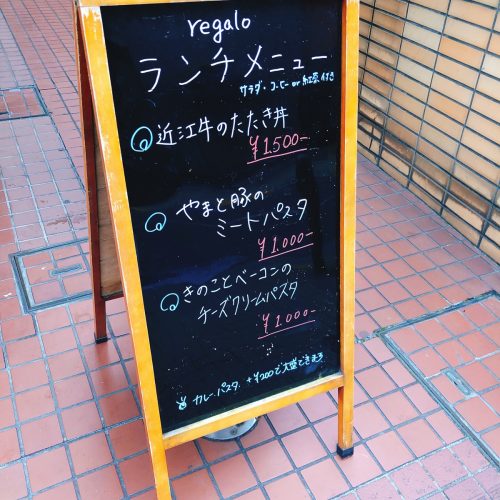 regalo
ランチメニュー
サラダ・コーヒー or 紅茶 付き
近江牛のたたき丼
¥1,500-
やまと豚の
ミートパスタ
¥1,000-
きのことベーコンの
チーズクリームパスタ
¥1,000-
カレー、パスタ +¥200で大盛できます